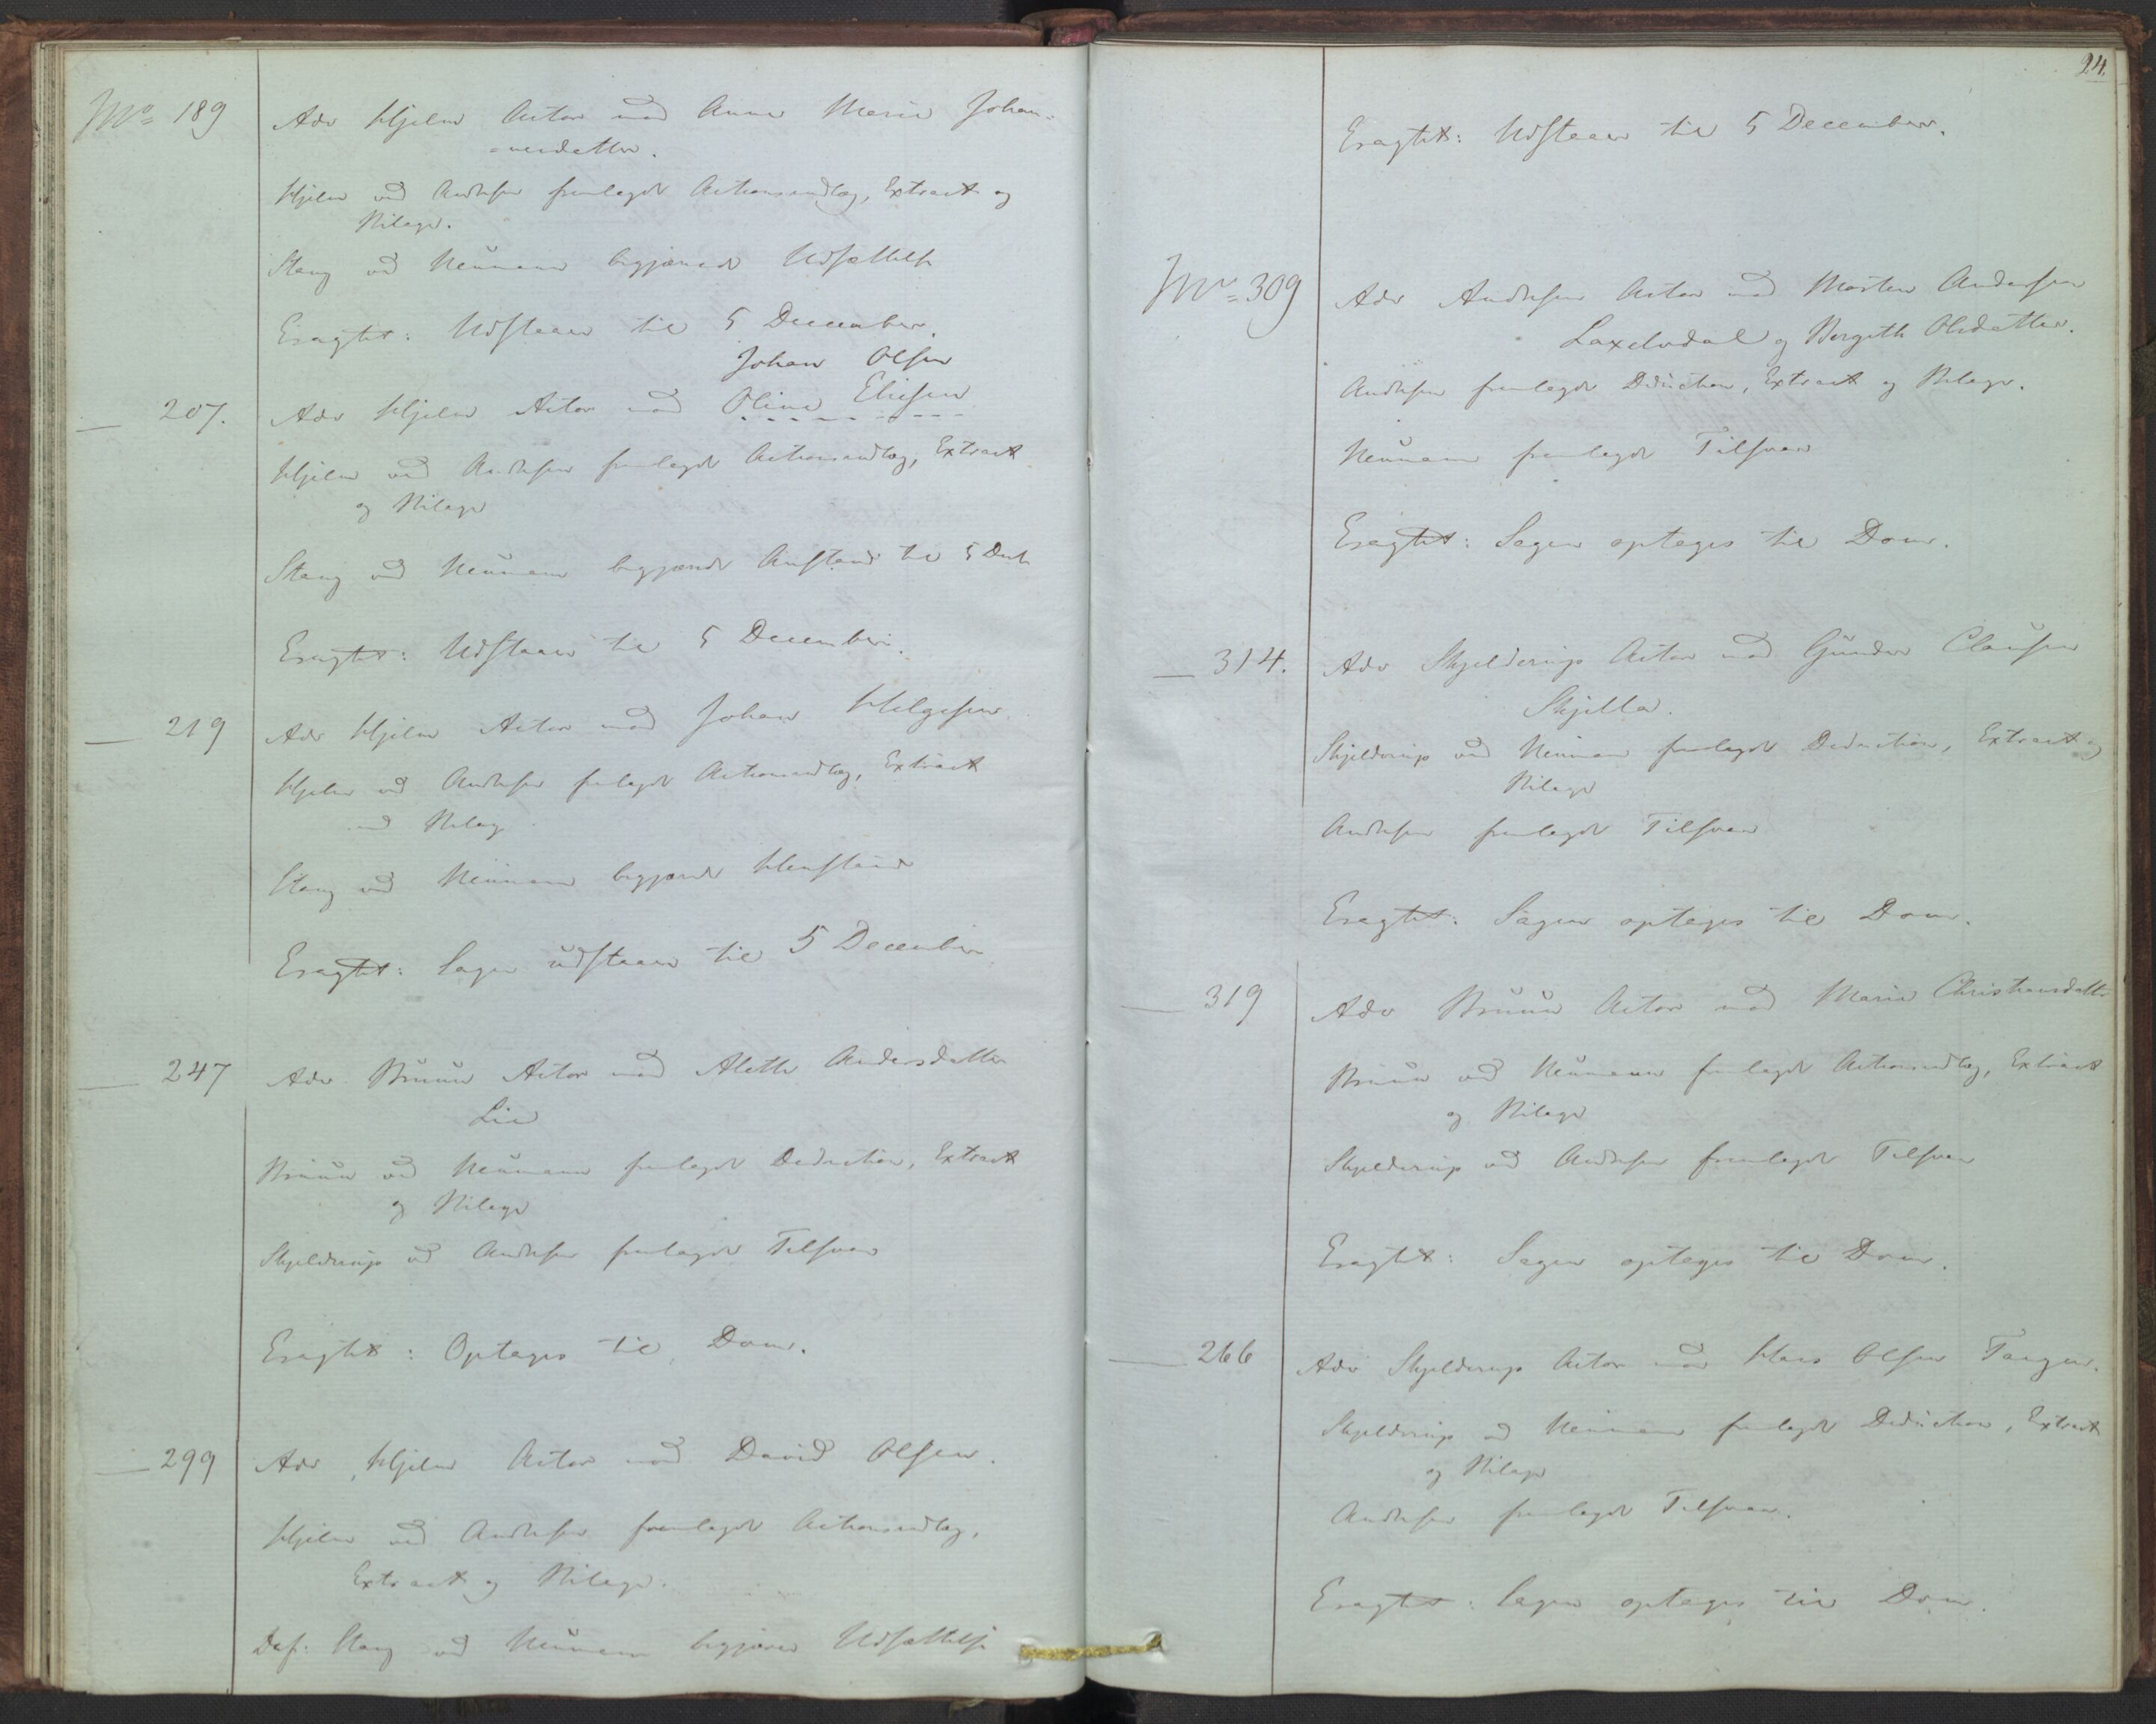 No 189
Adv Hjelm Actor mod Anne Marie Johan-
=nesdatter.
Hjelm ved Andresen fremlagde Actionsindlæg, Extract og
Bilage.
Stang ved Neumann begjærede Udsættelse
Eragtet: Udstaaer til 5 December.
Johan Olsen
207. Adv Hjelm Actor mod Oline Eliesen
Hjelm ved Andresen fremlagde Actionsindlæg, Extract
og Bilage
Stang ved Neumann begjærede Anstand til 5 Decb
Eragtet: Udstaaer til 5 December.
219 Adv Hjelm Actor mod Johan Helgesen
Hjelm ved Andresen fremlagde Actionsindlæg, Extract
Bilag
Stang ved Neumann begjærede Henstand
Eragtet: Sagen udstaaer til 5 December
247 Adv. Bruun Actor mod Alette Andersdatter
Lie
Bruun ved Neumann fremlagde Deduction, Extract
og Bilage
Skjelderup ved Andresen fremlagde Tilsvar
Eragtet: Optages til Dom.
299 Adv Hjelm Actor mod David Olsen.
Hjelm ved Andresen fremlagde Actionsindlæg,
Extract og Bilage.
Def: Stang ved Neumann begjærer Udsættelse
24.
Eragtet: Udstaaer til 5 December.
No 309 Adv Andresen Actor mod Morten Andersen
Laxelvdal og Bergith Olsdatter.
Andresen fremlagde Deduction, Extract og Bilage.
Neumann fremlagde Tilsvar
Eragtet: Sagen optages til Dom.
314. Adv Skjelderup Actor mod Gunder Clausen
Skjelderup ved Neumann fremlagde Deduction, Extract og
Bilage
Andresen fremlagde Tilsvar
Eragtet: Sagen optages til Dom.
319 Adv Bruun Actor mod Marie Christensdatter
Bruun ved Neumann fremlagde Actionsindlæg, Extract
og Bilage
Skjelderup ved Andresen fremlagde Tilsvar
Eragtet: Sagen optages til Dom.
266 Adv Skjelderup Actor mod Hans Olsen Tangen.
Skjelderup ved Neumann fremlagde Deduction, Extract
og Bilage
Andresen fremlagde Tilsvar.
Eragtet: Sagen optages til Dom.